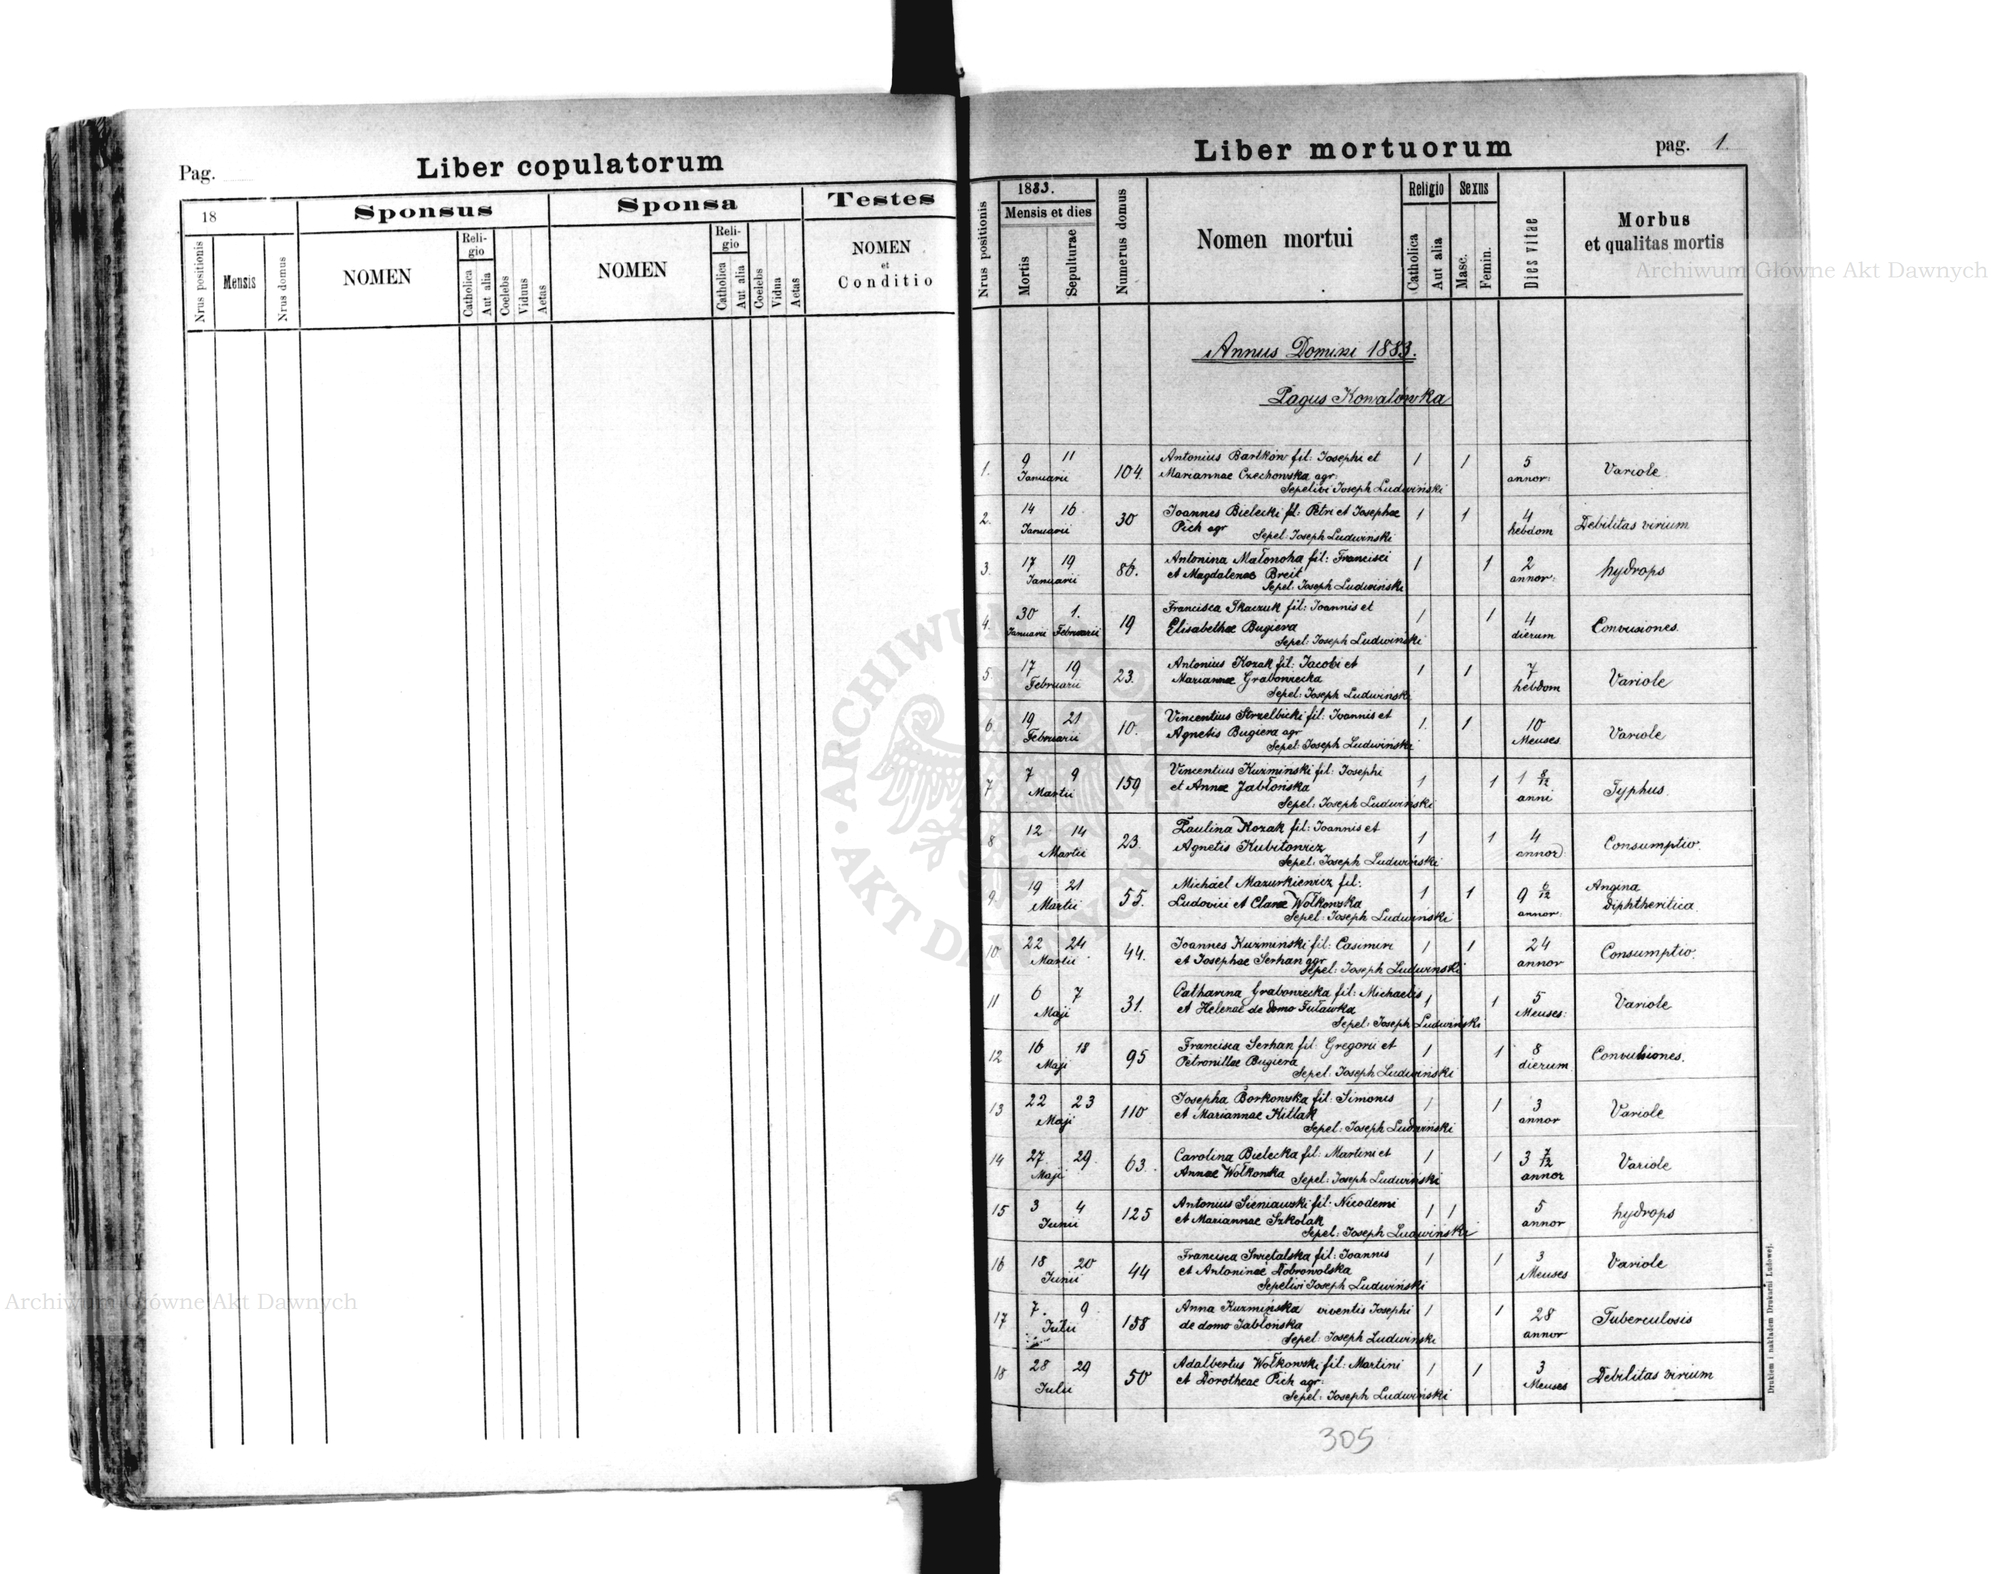 Pag.
Liber copulatorum
18
Sponsus
Sponsa
Testes
Nrus positionis
Mensis
Nrus domus
NOMEN
Religio
Catholica
Aut alia
Coelebs
Viduus
Aetas
NOMEN
Religio
Catholica
Aut alia
Coelebs
Vidua
Aetas
NOMEN
et
Conditio
Liber mortuorum
pag. 1.
Nrus positionis
1883.
Mensis et dies
Mortis
Sepulturae
Numerus domus
Nomen mortui
Religio
Catholica
Aut alia
Sexus
Masc.
Femin.
Dies vitae
Morbus
et qualitas mortis
Annus Domini 1883.
Pagus Kowalówka
1. 9 11 Januarii 104. Antonius Bartków fil: Josephi et
Mariannae Czechowska agr:
Sepelivi Joseph Ludwiński
1 1 5 annor: Variole.
2. 14 16 Januarii 30 Joannes Bielecki fil: Petri et Josephae
Pich agr
Sepel: Joseph Ludwiński
1 1 4 hebdom Debilitas virium
3. 17 19 Januarii 86. Antonina Małonoha fil: Francisci
et Magdalenae Breit
Sepel: Joseph Ludwiński
1 1 2 annor: hydrops
4. 30 Januarii 1. Februarii 19 Francisca Tkaczuk fil: Joannis et
Elisabethae Bugiera
Sepel: Joseph Ludwiński
1 1 4 dierum Convusiones.
5. 17 19 Februarii 23. Antonius Kozak fil: Jacobi et
Mariannae Grabowiecka
Sepel: Joseph Ludwiński
1 1 7 hebdom Variole
6 19 21 Februarii 10. Vincentius Strzelbicki fil: Joannis et
Agnetis Bugiera agr
Sepel: Joseph Ludwiński
1. 1 10 Menses Variole
7 7 9 Martii 159 Vincentius Kuzmiński fil: Josephi
et Annae Jabłońska
Sepel: Joseph Ludwiński
1 1 1 8/12 anni Typhus.
8 12 14 Martii 23. Paulina Kozak fil: Joannis et
Agnetis Kubitowicz
Sepel: Joseph Ludwiński
1 1 4 annor Consumptio.
9. 19 21 Martii 55. Michael Mazurkiewicz fil:
Ludovici et Clarae Wołkowska
Sepel: Joseph Ludwiński
1 1 9 6/12 annor: Angina
Diphtheritica.
10 22 24 Martii 44. Joannes Kuzmiński fil: Casimiri
et Josephae Serhan agr
Sepel: Joseph Ludwiński
1 1 24 annor Consumptio.
11 6 7 Maji 31. Catharina Grabowiecka fil: Michaelis
et Helenae de domo Tuławka
Sepel: Joseph Ludwiński
1 1 5 Menses: Variole
12 16 18 Maji 95 Francisca Serhan fil: Gregorii et
Petronillae Bugiera
Sepel: Joseph Ludwiński
1 1 8 dierum Convulsiones.
13 22 23 Maji 110 Josepha Borkowska fil: Simonis
et Mariannae Kitlak
Sepel: Joseph Ludwiński
1 1 3 annor Variole
14 27. 29. Maji 63. Carolina Bielecka fil: Martini et
Annae Wołkowska Sepel: Joseph Ludwiński
1 1 3 7/12 annor Variole
15 3 4 Junii 125 Antonius Sieniawski fil: Nicodemi
et Mariannae Szkolak
Sepel: Joseph Ludwiński
1 1 5 annor hydrops
16 18 20 Junii 44 Francisca Swiętalska fil: Joannis
et Antoninae Dobrowolska
Sepelivi Joseph Ludwiński
1 1 3 Menses Variole
17 7. 9. Julii 158 Anna Kuzmińska viventis Josephi
de domo Jabłońska
Sepel: Joseph Ludwiński
1 1 28 annor Tuberculosis
18 28 29 Julii 50 Adalbertus Wołkowski fil: Martini
et Dorotheae Pich agr:
Sepel: Joseph Ludwiński
1 1 3 Menses Debilitas virium
Drukiem i nakładem Drukarni Ludowej.
305
Archiwum Główne Akt Dawnych
Archiwum Główne Akt Dawnych